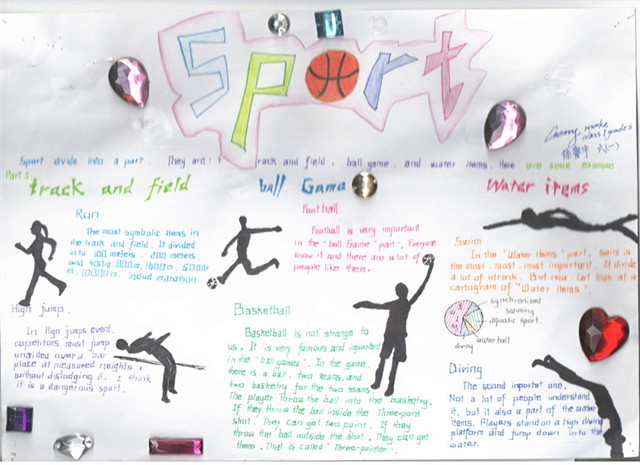 Sport
Cherry make
class 1 grade 6
六(一)
Sport divide into a part. They are: track and field, ball game, and water items. Here are some example
Part 1
track and field
ball Game
Water items
Run
The most symbolic items in
the track and field. It divided
into 100 meters, 200 meters,
and 400m, 800m, 1500m, 5000
m, 10000m, includ marathon.
High jump.
In High jumps event,
competitors must jump
unaided over a bar
place at measured heights
without dislodging it. I think
it is a dangerous sport.
Football
Football is very important
in the "ball Game" part. Everyone
know it and there are a lot of
people like them.
Basketball
Basketball is not strange to
us. It is very famous and important
in the "ball games". In the game,
there is a ball, two teams, and
two basketry for the two teams
The player throw the ball into the basketry.
If they throw the ball inside the Three-poin
shot. They can get two point. If they
throw the ball outside the shot. They can get
them. That is called "Three-pointer".
Swim
In the "Water items" part, swim is
the most, most, most important. It divide
a lot of Let look at a
cartogram of "Water items".
SWIM
synchronized
swimming
aquatic sport.
water ball
diving
Diving
The second important one.
Not a lot of people understand
it, but it also a part of the water
items. Players stand on a high diving
platform and jump down into the
water.